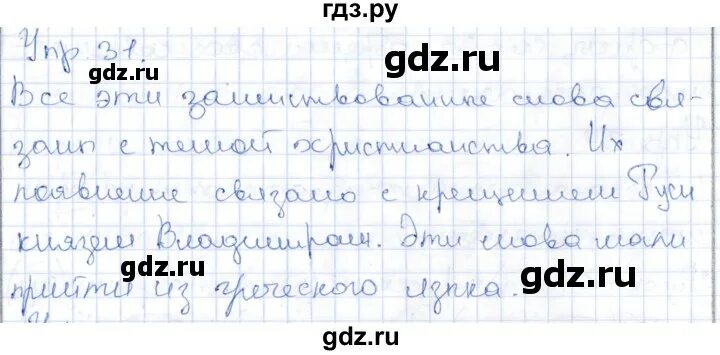 гдз.ру
gdz.ru
Упр 31.
gdz.ru
Все эти заимствование слова свя-
заны с темой христианства. Их
появление связано с крещением Руси
князем Владимиром. Эти слова могли
gdz.ru
прийти из греческого языка.
gdz.ru